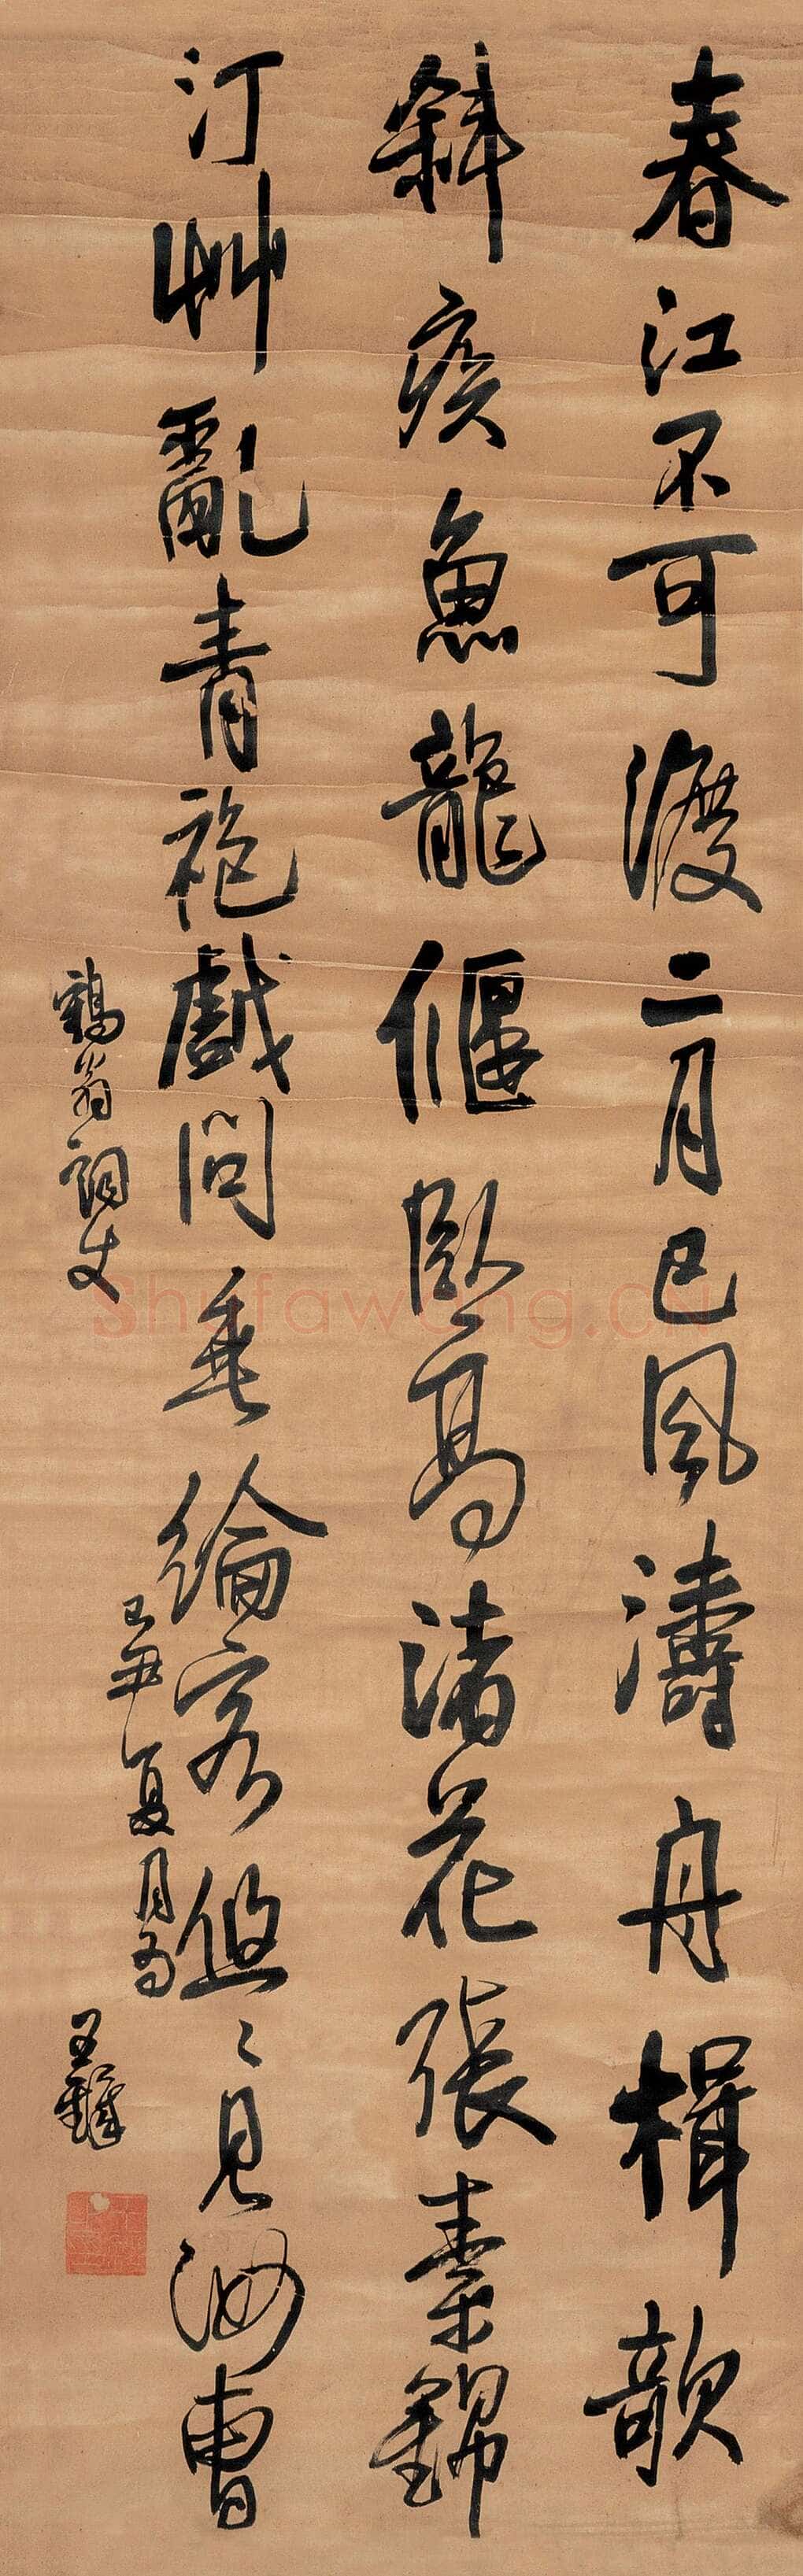 春江不可渡二月已風濤舟楫欹
斜疾魚龍偃臥高渚花張素錦
汀艸亂青袍戲問垂綸客悠〻見汝曹
己丑夏月為
鶴翁詞丈
王鐸
Shufawang.CN